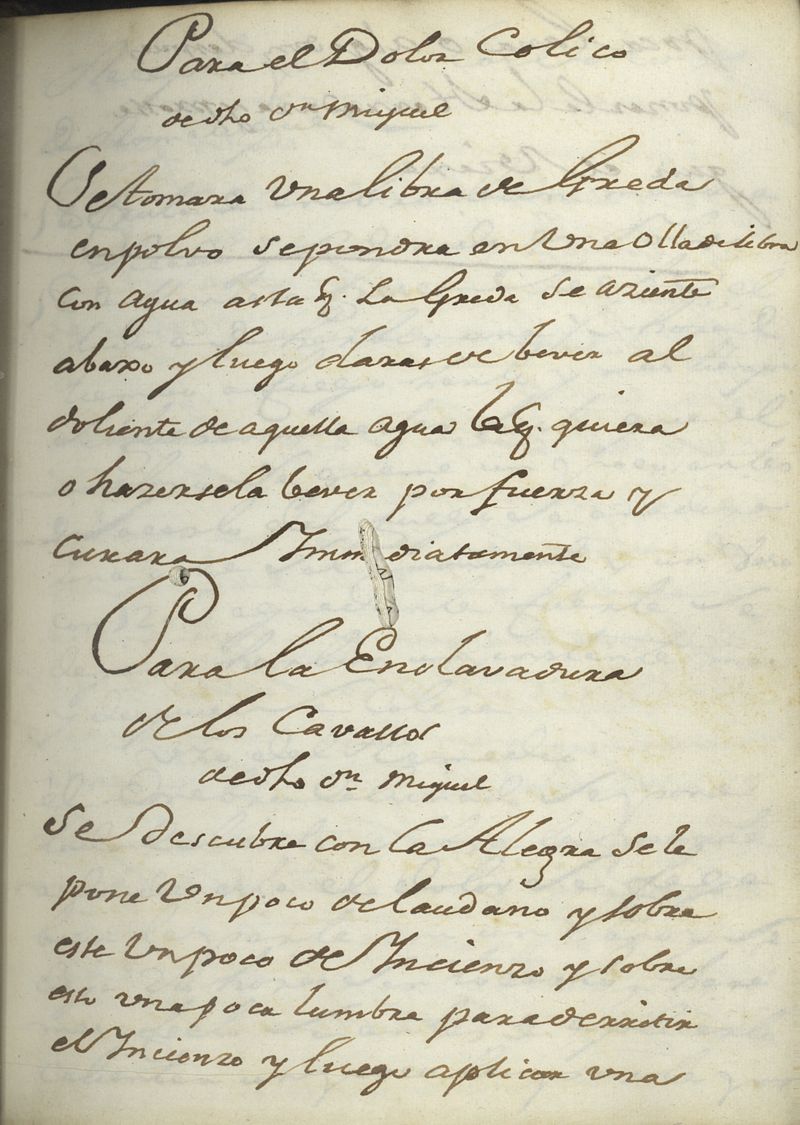 Para el Dolor Colico
de dho Dn Miguel
Se tomara Vna libra de Greda
en polvo se pondra en Vna Olla de libra
con agua asta q. La Greda se aziente
abaxo y luego daras de bever al
doliente de aquella agua la q. quiera
o hazersela bever por fuerza y
curara Immediatamente
Para la Enclavadura
de los Cavallos
de dho Dn Miguel
Se Descubre con la Alegra se le
pone Vn poco de laudano y sobre
este Vn poco de Incienzo y sobre
esto vna poca lumbre para derritir
el Incienzo y luego aplicar vna